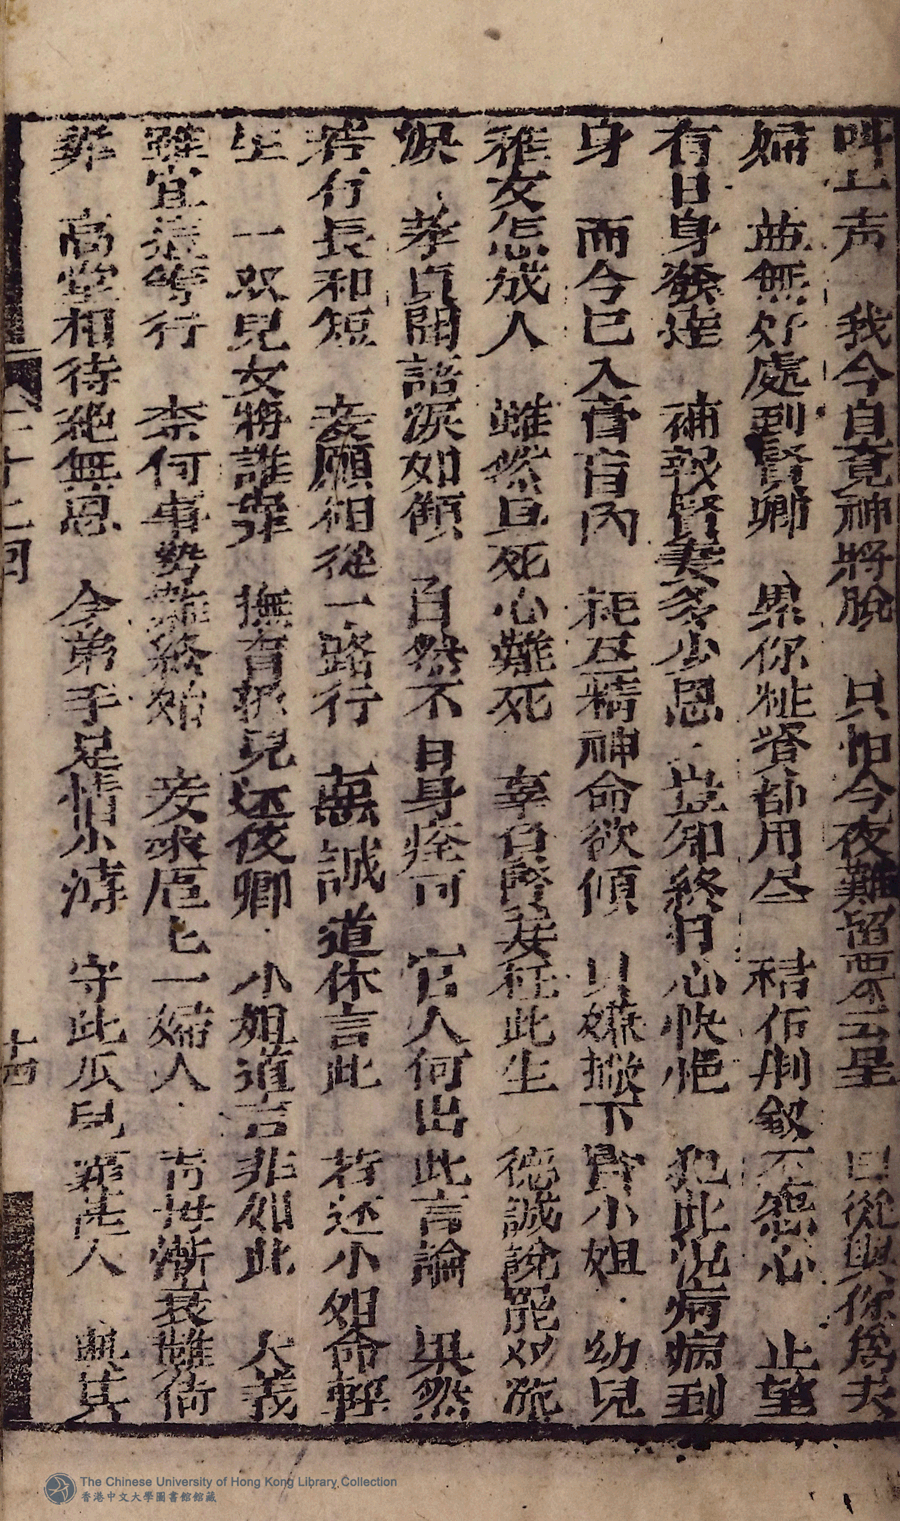 叫一声　我今自覚神將脫　只怕今夜難留要公呈　自從與你為夫
婦　並無好處到賢卿　累你粧奩都用尽　秸佈荆釵不怨心　止望
有日身發達　補報賢妻多少恩　豈知終日心怏悒　犯此沉病病到
身　而今已入膏肓內　耗尽精神命欲傾　只嫌撇下賢小姐　幼兒
稚女怎成人　雖然旦死心難死　辜負賢妻枉此生　德誠說罷如流
淚　孝貞聞語淚如傾　自然不日身痊可　官人何出此言論　果然
若行長和短　妾願相從一路行　萬誠道休言此　若还小姐命輕
生　一双兒女將誰靠　撫育孤兒还俊卿　小姐道言非如此　大義
雖宜張等行　柰何事勢難終始　妾求居七一婦人　青性漸衰難倚
靠　高堂相待絕無恩　令弟手足情小溥　守此瓜兒靠誰人　與其
二十二回
十四
The Chinese University of Hong Kong Library Collection
香港中文大學圖書館館藏